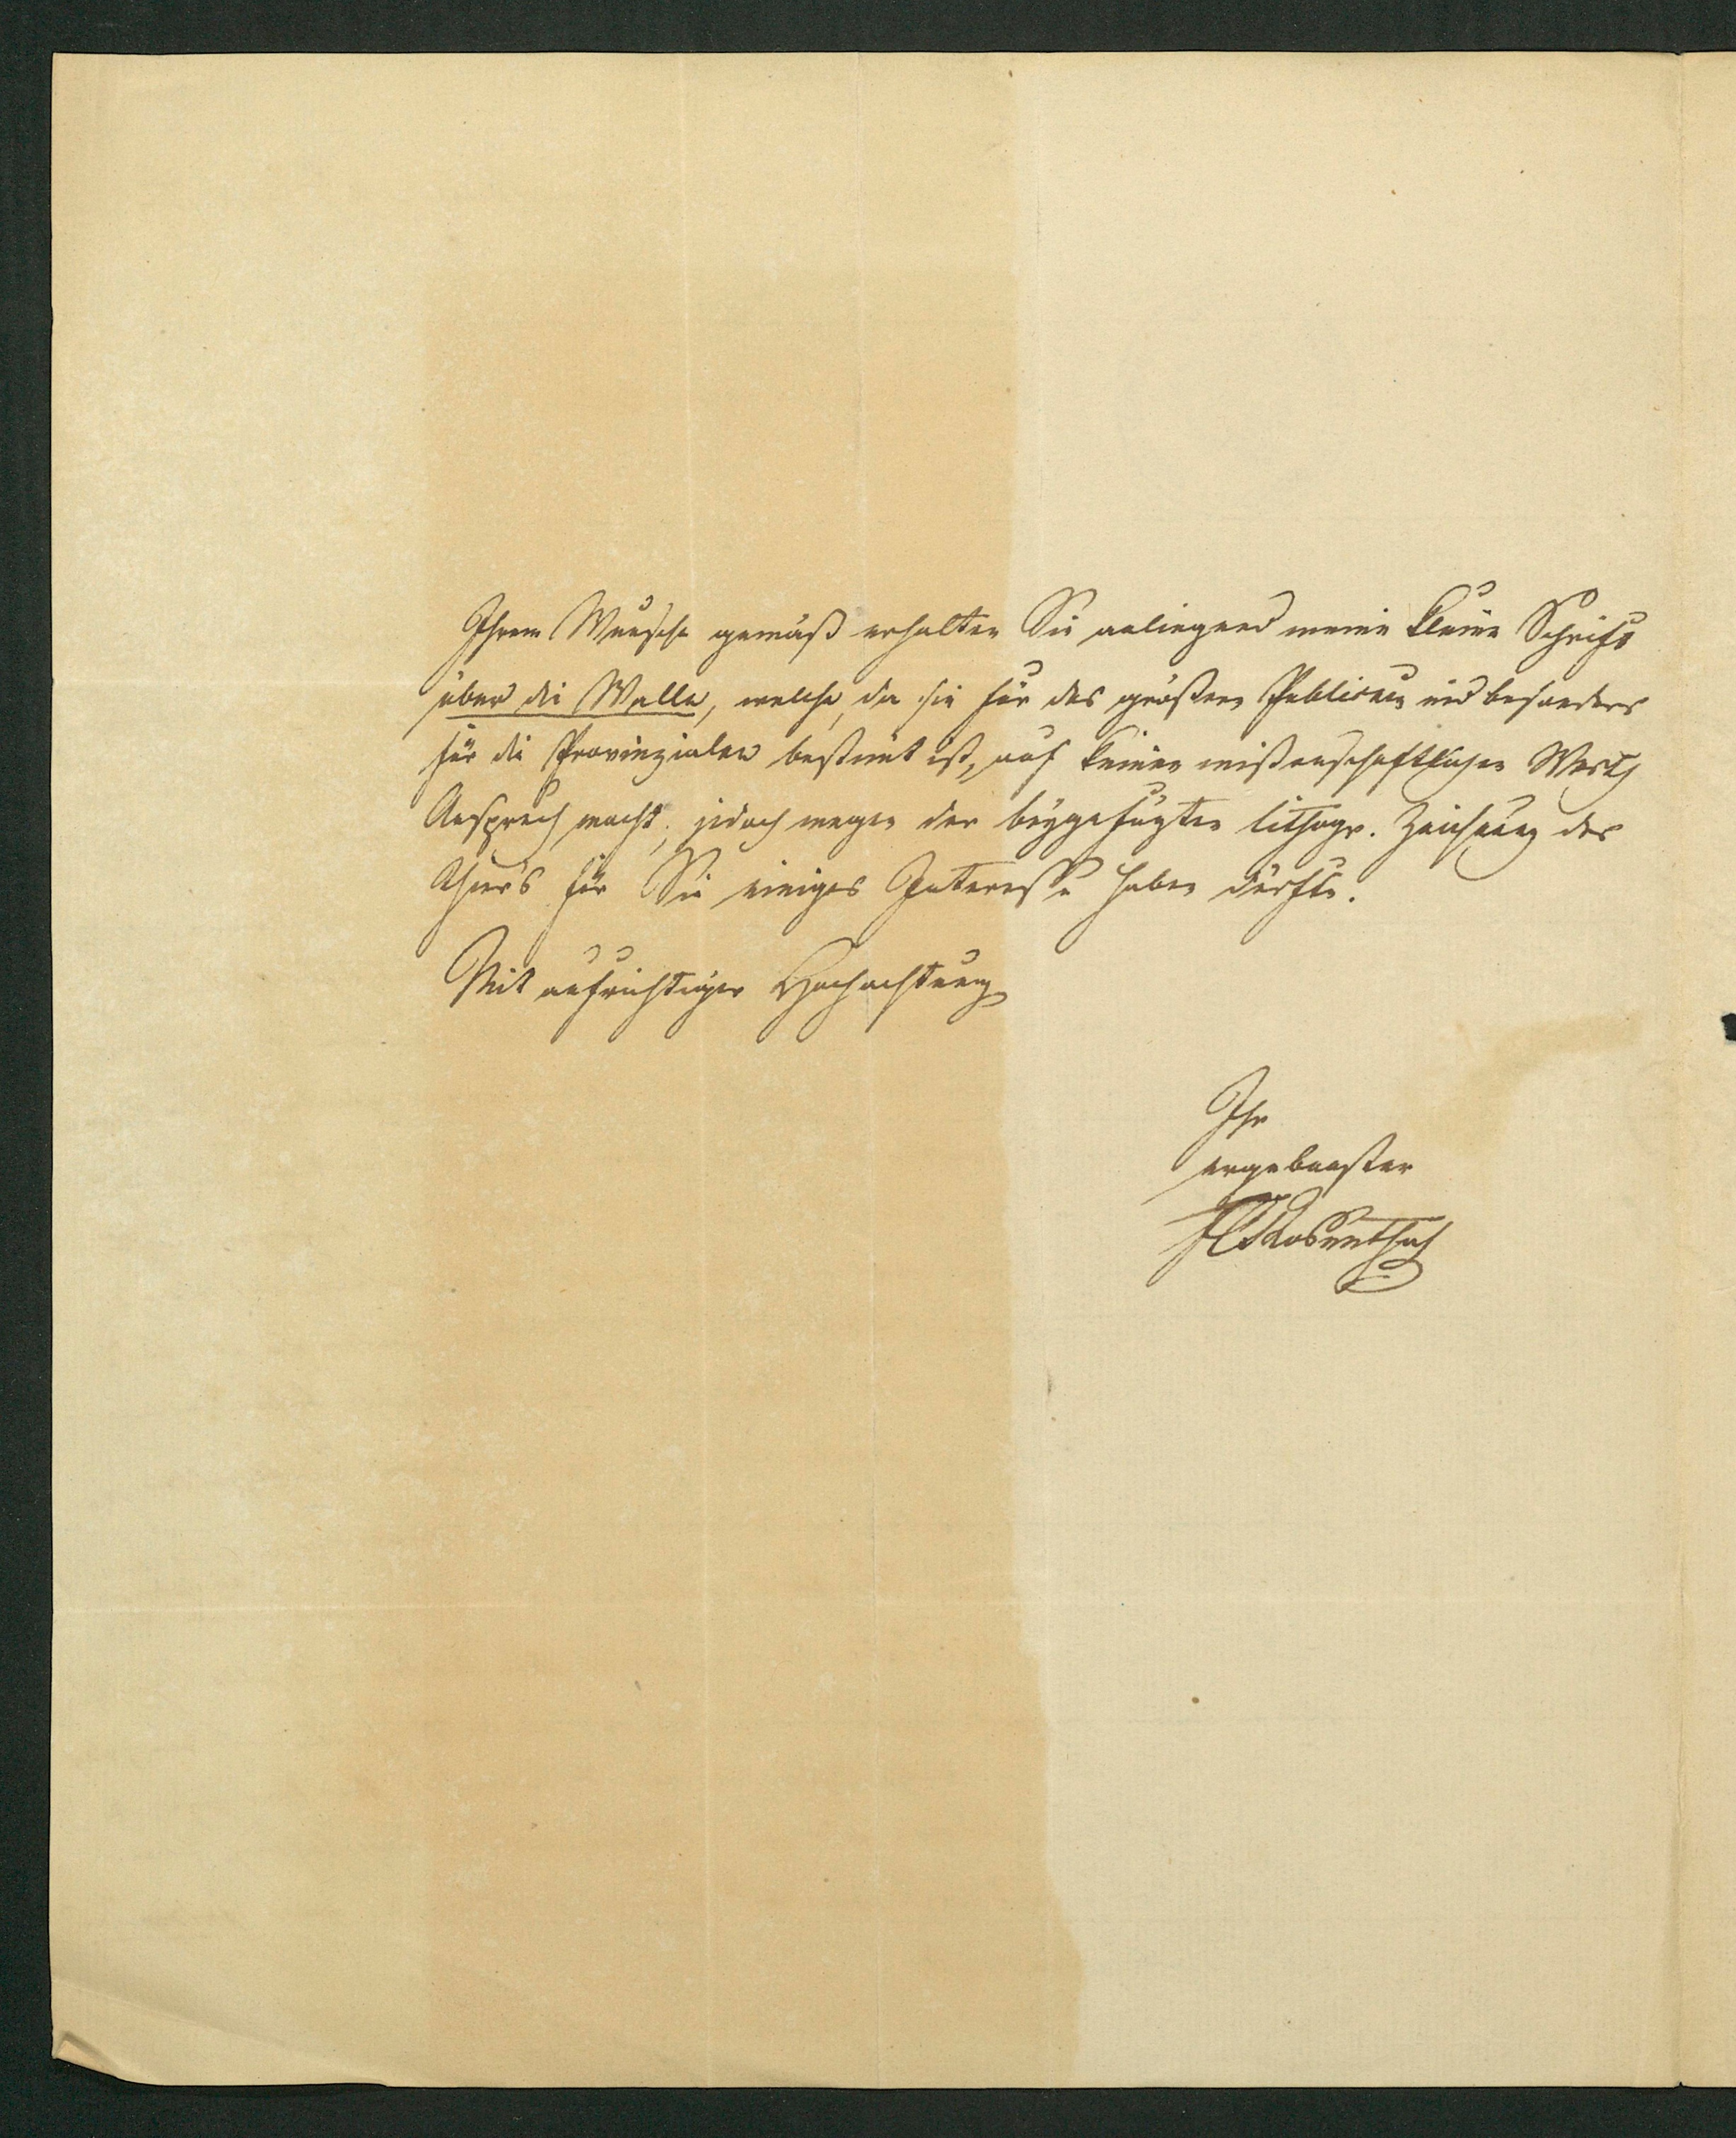 Ihrem Wunsche gemäß erhalten Sie anliegend meine kleine Schrift
über die Walle, welche, da sie für das größere Publicum und besonders
für die Provinzialen bestimt ist, auf keinen wißenschaftlichen Werth
Anspruch macht, jedoch wegen der beygefügten lithogr. Zeichnung des
Thier's für Sie einiges Interesse haben dürfte.
Mit aufrichtiger Hochachtung
Ihr
ergebenster
Rosenthal